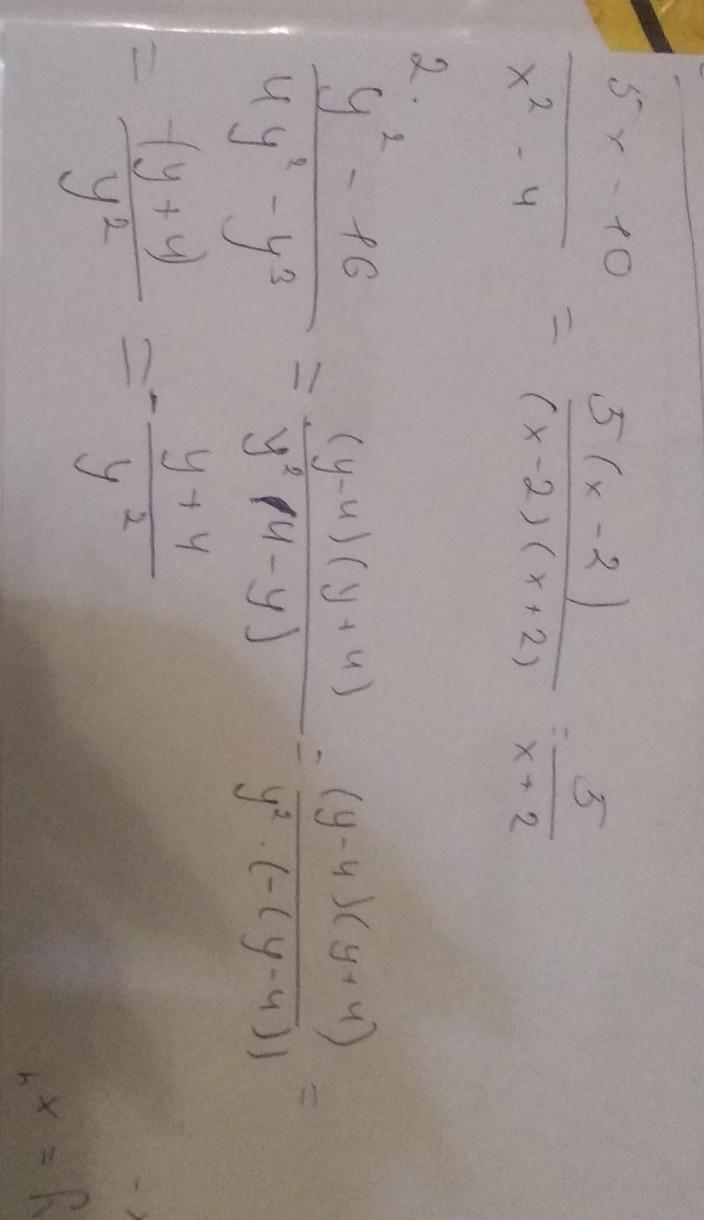 5x - 10 / x² - 4 = 5(x - 2) / (x - 2)(x + 2) = 5 / x + 2
2.
y² - 16 / 4y² - y³ = (y-4)(y+4) / y²(4-y) = (y-4)(y+4) / y² · (-(y-4)) =
= -(y+4) / y² = - y+4 / y²